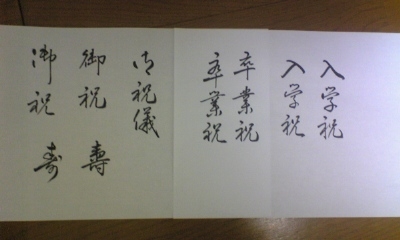 入学祝
入学祝
卒業祝
卒業祝
御祝儀
御祝 壽
御祝 寿